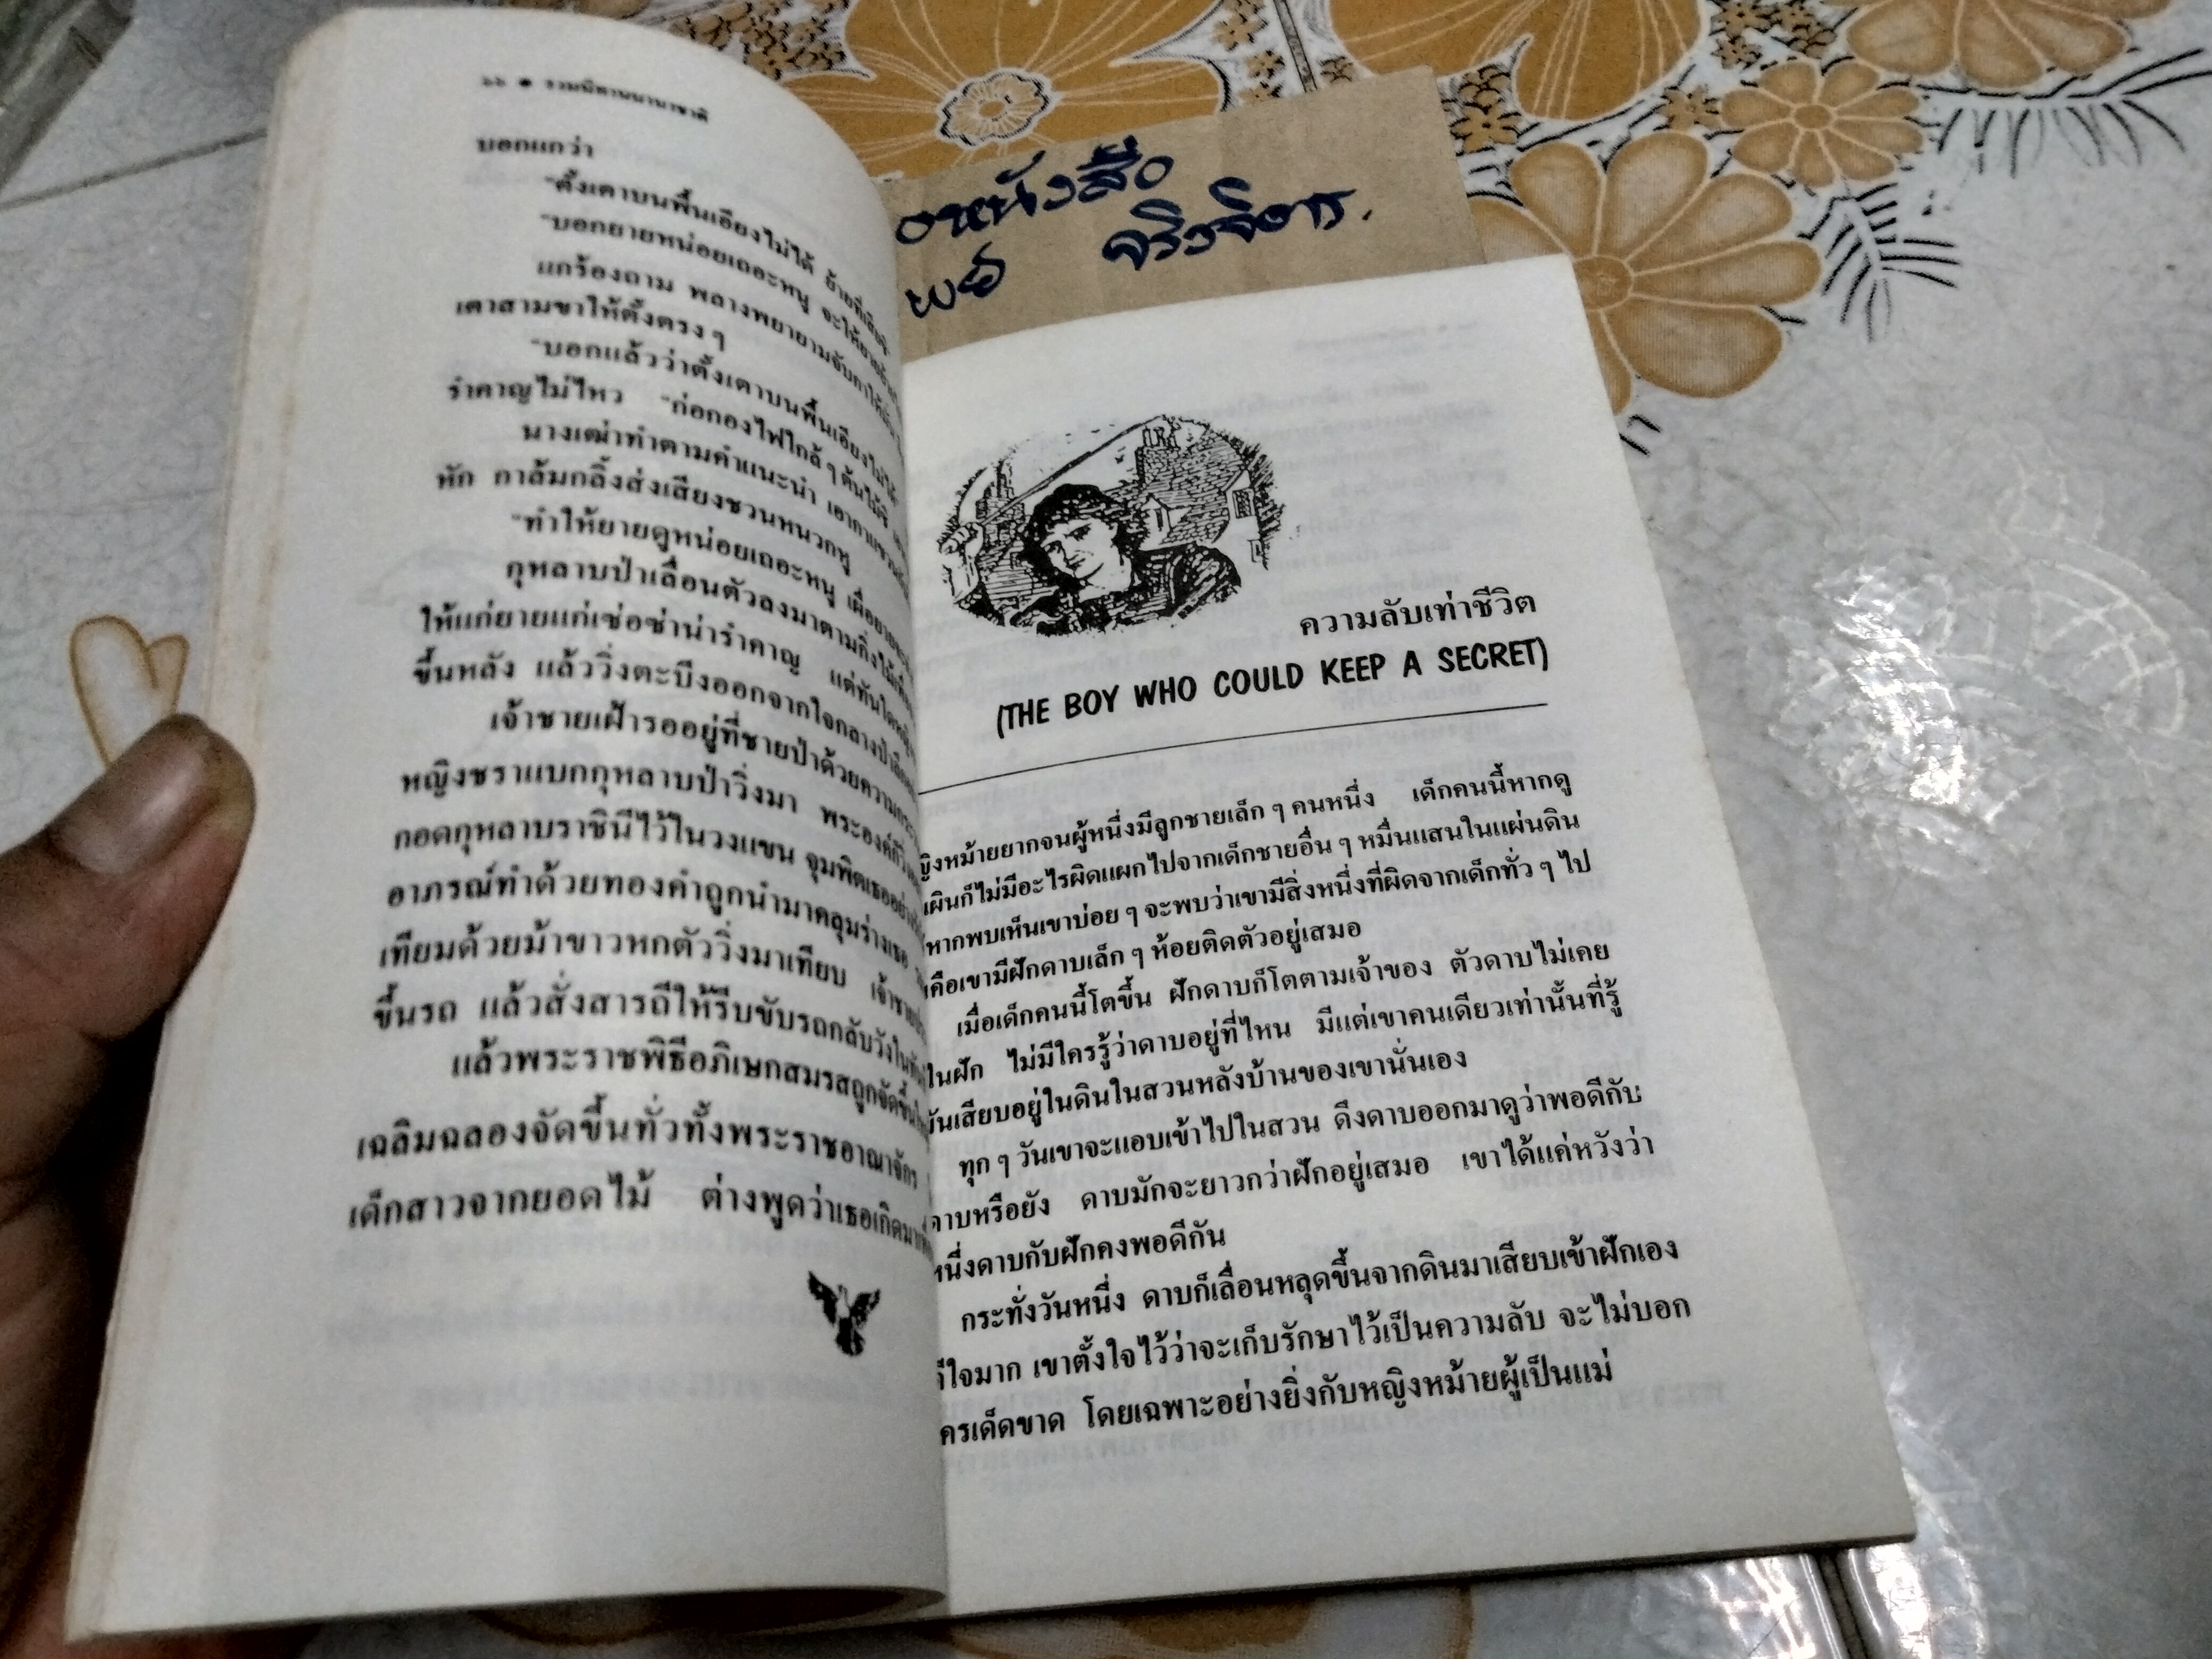 ๖๖ ● รวมนิทานนานาชาติ
บอกแกว่า
"ตั้งเตาบนพื้นเอียงไม่ได้ ย้ายที่เสียซิ
"บอกยายหน่อยเถอะหนู จะให้ยาย
แกร้องถาม พลางพยายามจับกาให้
เตาสามขาให้ตั้งตรง ๆ
"บอกแล้วว่าตั้งเตาบนพื้นเอียงไม่ได้"
รำคาญไม่ไหว "ก่อกองไฟใกล้ ๆ ต้นไม้ซิ
นางเฒ่าทำตามคำแนะนำ เอากาแขวน
หัก กาล้มกลิ้งส่งเสียงชวนหนวกหู
"ทำให้ยายดูหน่อยเถอะหนู เผื่อยาย
กุหลาบป่าเลื่อนตัวลงมาตามกิ่งไม้
ให้แก่ยายแก่เซ่อซ่าน่ารำคาญ แต่ทันใด
ขึ้นหลัง แล้ววิ่งตะบึงออกจากใจกลางป่า
เจ้าชายเฝ้ารออยู่ที่ชายป่าด้วยความ
หญิงชราแบกกุหลาบป่าวิ่งมา พระองค์ก็
กอดกุหลาบราชินีไว้ในวงแขน จุมพิตเธออย่าง
อาภรณ์ทำด้วยทองคำถูกนำมาคลุมร่างเธอ
เทียมด้วยม้าขาวหกตัววิ่งมาเทียบ เจ้าชาย
ขึ้นรถ แล้วสั่งสารถีให้รีบขับรถกลับวังใน
แล้วพระราชพิธีอภิเษกสมรสถูกจัดขึ้น
เฉลิมฉลองจัดขึ้นทั่วทั้งพระราชอาณาจักร
เด็กสาวจากยอดไม้ ต่างพูดว่าเธอเกิดมา
หนังสือ
จริงจิตร.
ความลับเท่าชีวิต
(THE BOY WHO COULD KEEP A SECRET)
หญิงหม้ายยากจนผู้หนึ่งมีลูกชายเล็ก ๆ คนหนึ่ง เด็กคนนี้หากดู
เผินก็ไม่มีอะไรผิดแผกไปจากเด็กชายอื่น ๆ หมื่นแสนในแผ่นดิน
หากพบเห็นเขาบ่อย ๆ จะพบว่าเขามีสิ่งหนึ่งที่ผิดจากเด็กทั่ว ๆ ไป
คือเขามีฝักดาบเล็ก ๆ ห้อยติดตัวอยู่เสมอ
เมื่อเด็กคนนี้โตขึ้น ฝักดาบก็โตตามเจ้าของ ตัวดาบไม่เคย
ในฝัก ไม่มีใครรู้ว่าดาบอยู่ที่ไหน มีแต่เขาคนเดียวเท่านั้นที่รู้
มันเสียบอยู่ในดินในสวนหลังบ้านของเขานั่นเอง
ทุก ๆ วันเขาจะแอบเข้าไปในสวน ดึงดาบออกมาดูว่าพอดีกับ
ดาบหรือยัง ดาบมักจะยาวกว่าฝักอยู่เสมอ เขาได้แค่หวังว่า
หนึ่งดาบกับฝักคงพอดีกัน
กระทั่งวันหนึ่ง ดาบก็เลื่อนหลุดขึ้นจากดินมาเสียบเข้าฝักเอง
ดีใจมาก เขาตั้งใจไว้ว่าจะเก็บรักษาไว้เป็นความลับ จะไม่บอก
ใครเด็ดขาด โดยเฉพาะอย่างยิ่งกับหญิงหม้ายผู้เป็นแม่